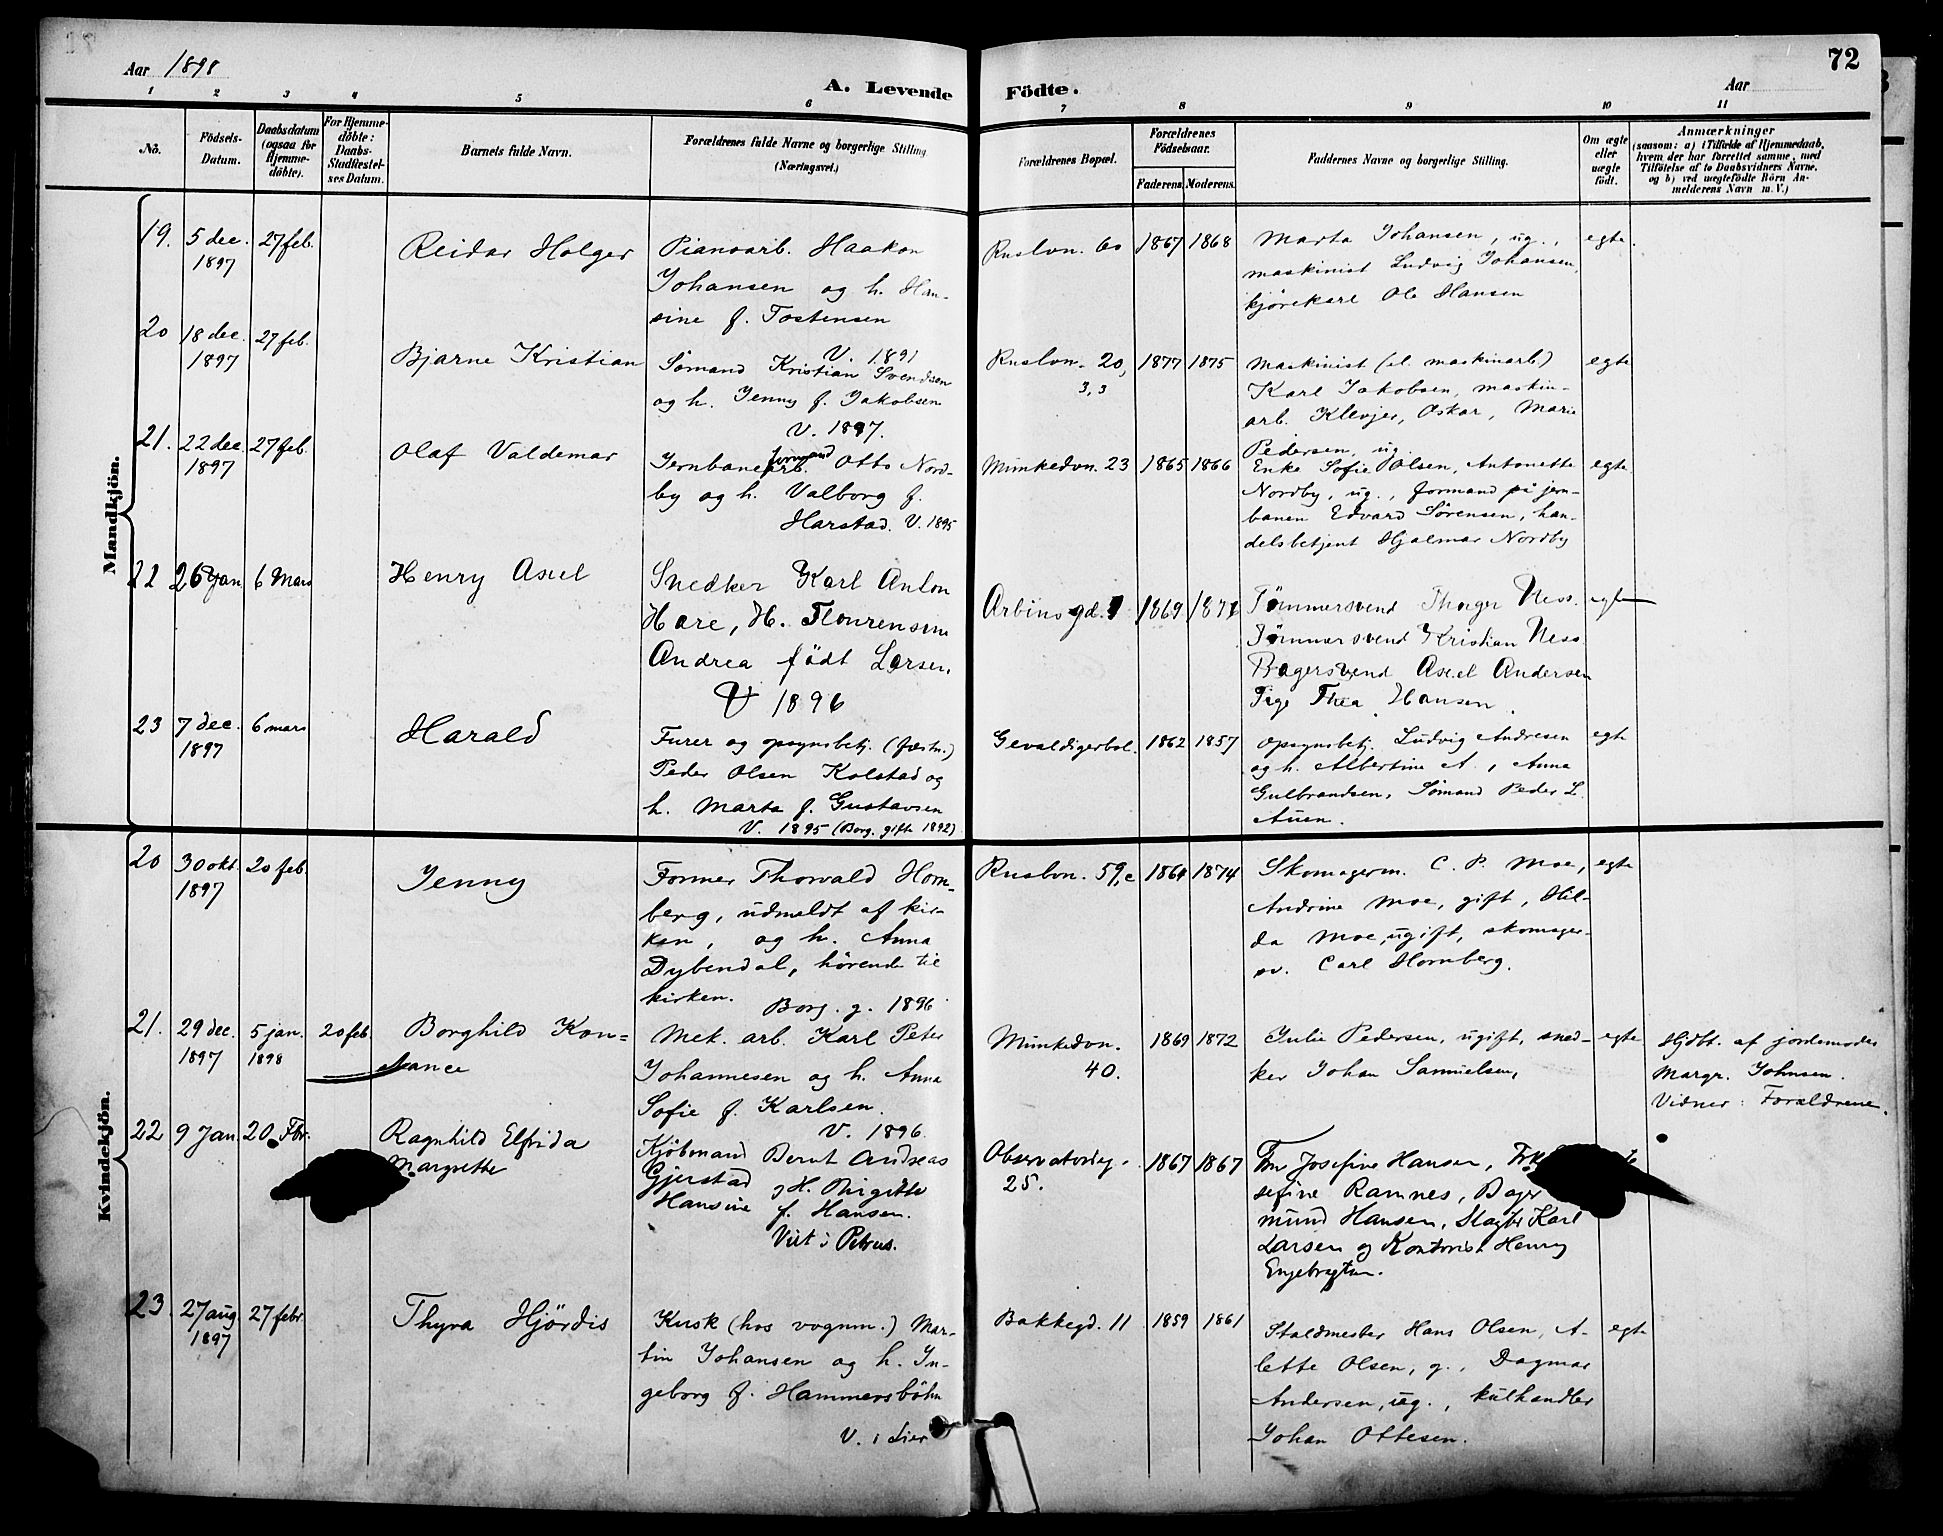 72
Aar 1898
A. Levende Födte.
Aar
1 2 3 4 5 6 7 8 9 10 11
Nö.
Födsels-Datum.
Daabsdatum (ogsaa for Hjemme-döbte).
For Hjemme-döbte: Daabs-Stadfæstel-ses Datum.
Barnets fulde Navn.
Forældrenes fulde Navne og borgerlige Stilling (Næringsvei.)
Forældrenes Bopæl.
Forældrenes Födselsaar.
Faderens. Moderens.
Faddernes Navne og borgerlige Stilling.
Om ægte eller uægte födt.
Anmærkninger
(saasom: a) i Tilfælde af Hjemmedaab,
hvem der har forrettet samme, med
Tilföielse af to Daabsvidners Navne,
og b) ved uægtefödte Börn An-
melderens Navn m. V.)
Mandkjön.
19. 5 dec. 1897 27 feb.
Reidar Holger
Pianoarb. Haakon
Johansen og h. Han-
sine f. Tostensen
V. 1891
Ruslvn. 60 1867 1868
Marta Johansen, ug.,
maskinist Ludvig Johansen,
kjörekarl Ole Hansen
egte.
20 18 dec. 1897 27 feb.
Bjarne Kristian
Sömand Kristian Svendsen
og h. Jenny f. Jakobsen
V. 1897.
Ruslvn. 20,
3,3
1877 1875
Maskinist (el. maskinarb.)
Karl Jakobsen, maskin-
arb. Klevjer, Oskar, Marie
Pedersen, ug.
egte
21. 22 dec. 1897 27 feb.
Olaf Valdemar
formand
Jernbanearb. Otto Nord-
by og h. Valborg f.
Harstad. V. 1895
Munkedvn. 23 1865 1866
Enke Sofie Olsen, Antonette
Nordby, ug., formand på jern-
banen Edvard Sörensen, han-
delsbetjent Hjalmar Nordby
egte
22 26 Jan. 6 Mars
Henry Axel
Snedker Karl Anton
Hare, H. Flourensine
Andrea födt Larsen.
V 1896
Arbins gd. 1 1869 1871
Tömmersvend Thorger Ness.
Tömmersvend Kristian Ness
Bagersvend Axel Andersen
Pige Thea Hansen.
egte
23 7 dec. 1897 6 mars
Harald
Furer og opsynsbetj. (fæstn.)
Peder Olsen Kolstad og
h. Marta f. Gustavsen
V. 1895 (Borg. gift 1892)
Gevaldigerbol. 1862 1857
Opsynsbetj. Ludvig Andresen
og h. Albertine A., Anna
Gulbrandsen, Sömand Peder L.
Auen.
egte
Kvindekjön.
20 30 okt. 1897 20 feb.
Jenny
Former Thorvald Horn-
berg, udmeldt af kir-
ken, og h. Anna
Dybendal, hörende til
kirken. Borg. g. 1896
Ruslvn. 59,c 1864 1874
Skomagerm. C. P. Moe,
Andrine Moe, gift, Hil-
da Moe, ugift, skomager-
sv. Carl Hornberg.
egte
21. 29 dec. 1897 5 jan. 1898 20 feb.
Borghild Kon=
stance
Mek. arb. Karl Peter
Johannesen og h. Anna
Sofie f. Karlsen.
V. 1896.
Munkedvn.
40.
1869 1872
Julie Pedersen, ugift, sned-
ker Johan Samuelsen,
egte
Hjdbt. af jordemoder
Margr. Johnsen.
Vidner: Forældrene.
22 9 Jan. 20. Fbr.
Ragnhild Elfrida
Margrethe
Kjöbmand Bernt Andreas
Gjerstad og H. Birgitte
Hansine f. Hansen.
Viet i Petrus.
Observatorieg.
25.
1867 1867
Fru Josefine Hansen, Frk
sefine Ramnes, Bager
mund Hansen, Slagter Karl
Larsen og Kontorist Henry
Engebregtsen.
23. 27 aug. 1897 27 febr.
Thyra Hjördis
Kusk (hos vognm.) Mar-
tin Johansen og h. In-
geborg f. Hammersböhn
V. i Lier
Bakkegd. 11 1859 1861
Staldmester Hans Olsen, A-
lette Olsen, g., Dagmar
Andersen, ug., kulhandler
Johan Ottesen.
egte